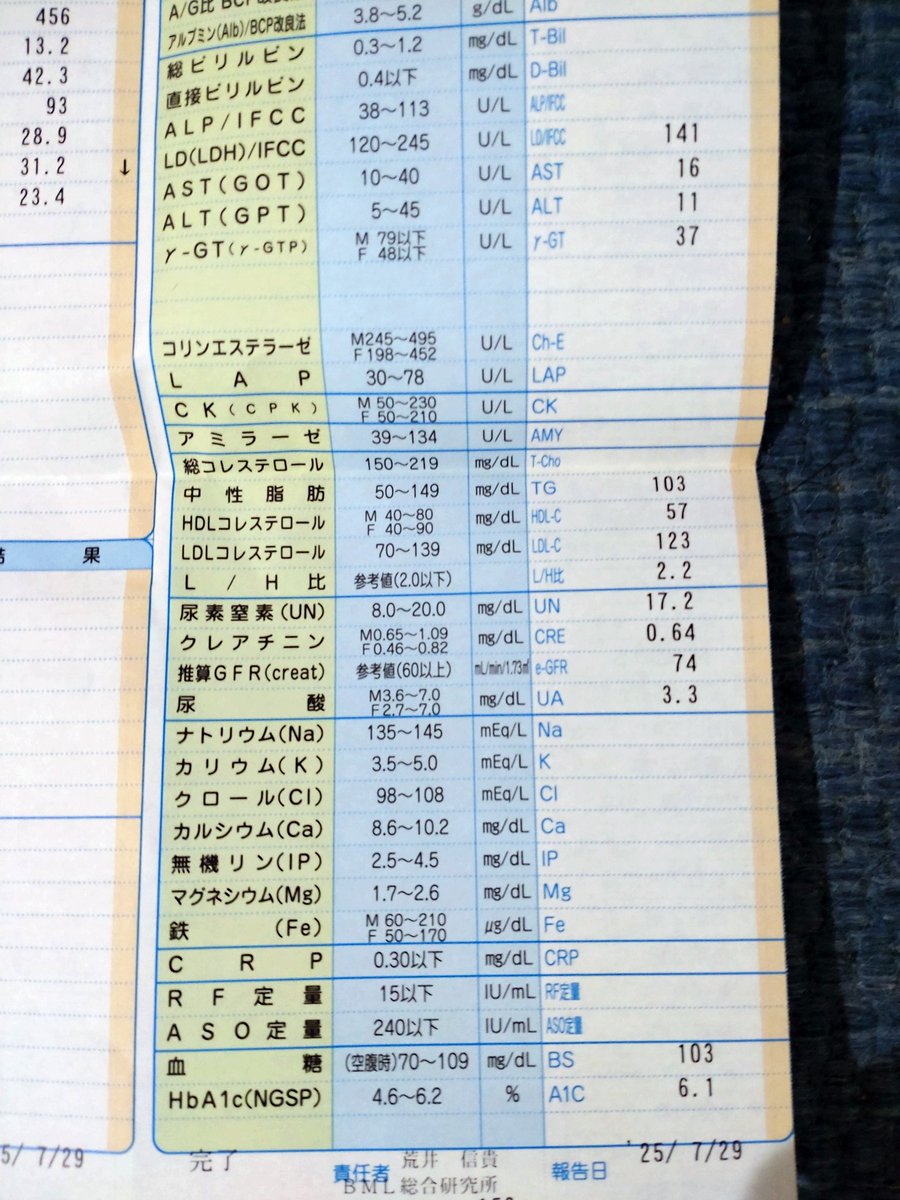 456
13.2
42.3
93
28.9
31.2 ↓
23.4
果
5/ 7/29
A/G比 BCP
アルブミン(Alb)/BCP改良法 3.8〜5.2 g/dL Alb
総ビリルビン 0.3〜1.2 mg/dL T-Bil
直接ビリルビン 0.4以下 mg/dL D-Bil
ALP/IFCC 38〜113 U/L ALP/IFCC
LD(LDH)/IFCC 120〜245 U/L LD/IFCC 141
AST(GOT) 10〜40 U/L AST 16
ALT(GPT) 5〜45 U/L ALT 11
γ-GT(γ-GTP) M 79以下 U/L γ-GT 37
F 48以下
コリンエステラーゼ M245〜495 U/L Ch-E
F198〜452
LAP 30〜78 U/L LAP
CK(CPK) M 50〜230 U/L CK
F 50〜210
アミラーゼ 39〜134 U/L AMY
総コレステロール 150〜219 mg/dL T-Cho
中性脂肪 50〜149 mg/dL TG 103
HDLコレステロール M 40〜80 mg/dL HDL-C 57
F 40〜90
LDLコレステロール 70〜139 mg/dL LDL-C 123
L/H比 参考値(2.0以下) L/H比 2.2
尿素窒素(UN) 8.0〜20.0 mg/dL UN 17.2
クレアチニン M0.65〜1.09 mg/dL CRE 0.64
F0.46〜0.82
推算GFR(creat) 参考値(60以上) mL/min/1.73㎡ e-GFR 74
尿酸 M3.6〜7.0 mg/dL UA 3.3
F2.7〜7.0
ナトリウム(Na) 135〜145 mEq/L Na
カリウム(K) 3.5〜5.0 mEq/L K
クロール(Cl) 98〜108 mEq/L Cl
カルシウム(Ca) 8.6〜10.2 mg/dL Ca
無機リン(IP) 2.5〜4.5 mg/dL IP
マグネシウム(Mg) 1.7〜2.6 mg/dL Mg
鉄(Fe) M 60〜210 μg/dL Fe
F 50〜170
CRP 0.30以下 mg/dL CRP
RF定量 15以下 IU/mL RF定量
ASO定量 240以下 IU/mL ASO定量
血糖 (空腹時)70〜109 mg/dL BS 103
HbA1c(NGSP) 4.6〜6.2 % A1C 6.1
完了 責任者 荒井 信貴 報告日 '25/ 7/29
BML総合研究所